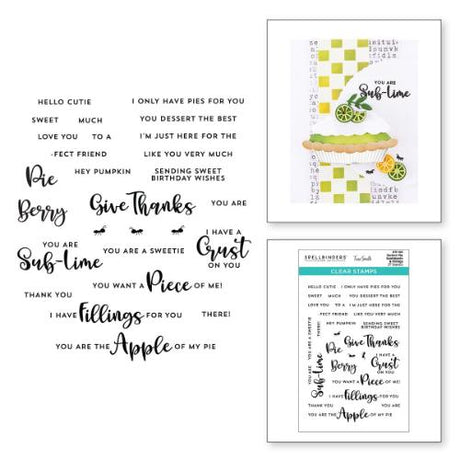 HELLO CUTIE I ONLY HAVE PIES FOR YOU
SWEET MUCH YOU DESSERT THE BEST
LOVE YOU TO A I'M JUST HERE FOR THE
-FECT FRIEND LIKE YOU VERY MUCH
HEY PUMPKIN SENDING SWEET
BIRTHDAY WISHES
Pie
Berry Give Thanks YOU ARE
YOU ARE
Sub-lime
YOU ARE A SWEETIE
I HAVE A
Crust
ON YOU
YOU WANT A Piece OF ME!
THANK YOU
I HAVE Fillings FOR YOU THERE!
YOU ARE THE Apple OF MY PIE
YOU ARE
Sub-lime
SPELLBINDERS
CLEAR STAMPS
HELLO CUTIE I ONLY HAVE PIES FOR YOU
SWEET MUCH YOU DESSERT THE BEST
LOVE YOU TO A I'M JUST HERE FOR THE
-FECT FRIEND LIKE YOU VERY MUCH
HEY PUMPKIN SENDING SWEET
BIRTHDAY WISHES
YOU ARE A SWEETIE
THERE!
Pie
Berry
Give Thanks
YOU ARE
Sub-lime
I HAVE A
Crust
ON YOU
YOU WANT A Piece OF ME!
I HAVE Fillings FOR YOU
THANK YOU YOU ARE
YOU ARE THE Apple OF MY PIE